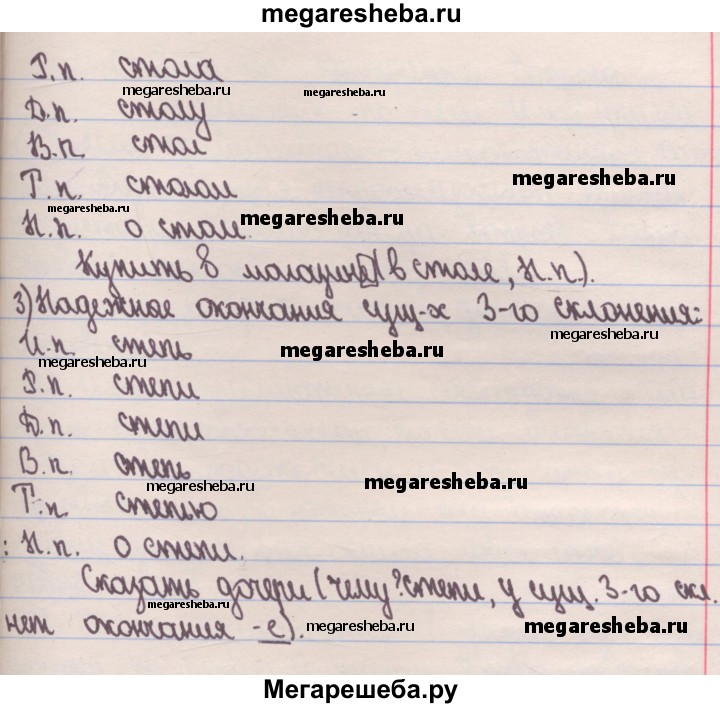 megaresheba.ru
Р.п. стола
megaresheba.ru
megaresheba.ru
Д.п. столу
В.п. стол
Т.п. столом
megaresheba.ru
megaresheba.ru
П.п. о столе.
megaresheba.ru
Купить в магазине (в столе, П.п.).
3) Падежное окончания сущ-х 3-го склонения:
megaresheba.ru
И.п. степь
megaresheba.ru
megaresheba.ru
Р.п. степи
Д.п. степи
В.п. степь
megaresheba.ru
megaresheba.ru
Т.п. степью
: П.п. о степи.
Сказать дочери (чему? степи, у сущ. 3-го скл.
megaresheba.ru
нет окончания -е).
megaresheba.ru
megaresheba.ru
megaresheba.ru
Мегарешеба.ру